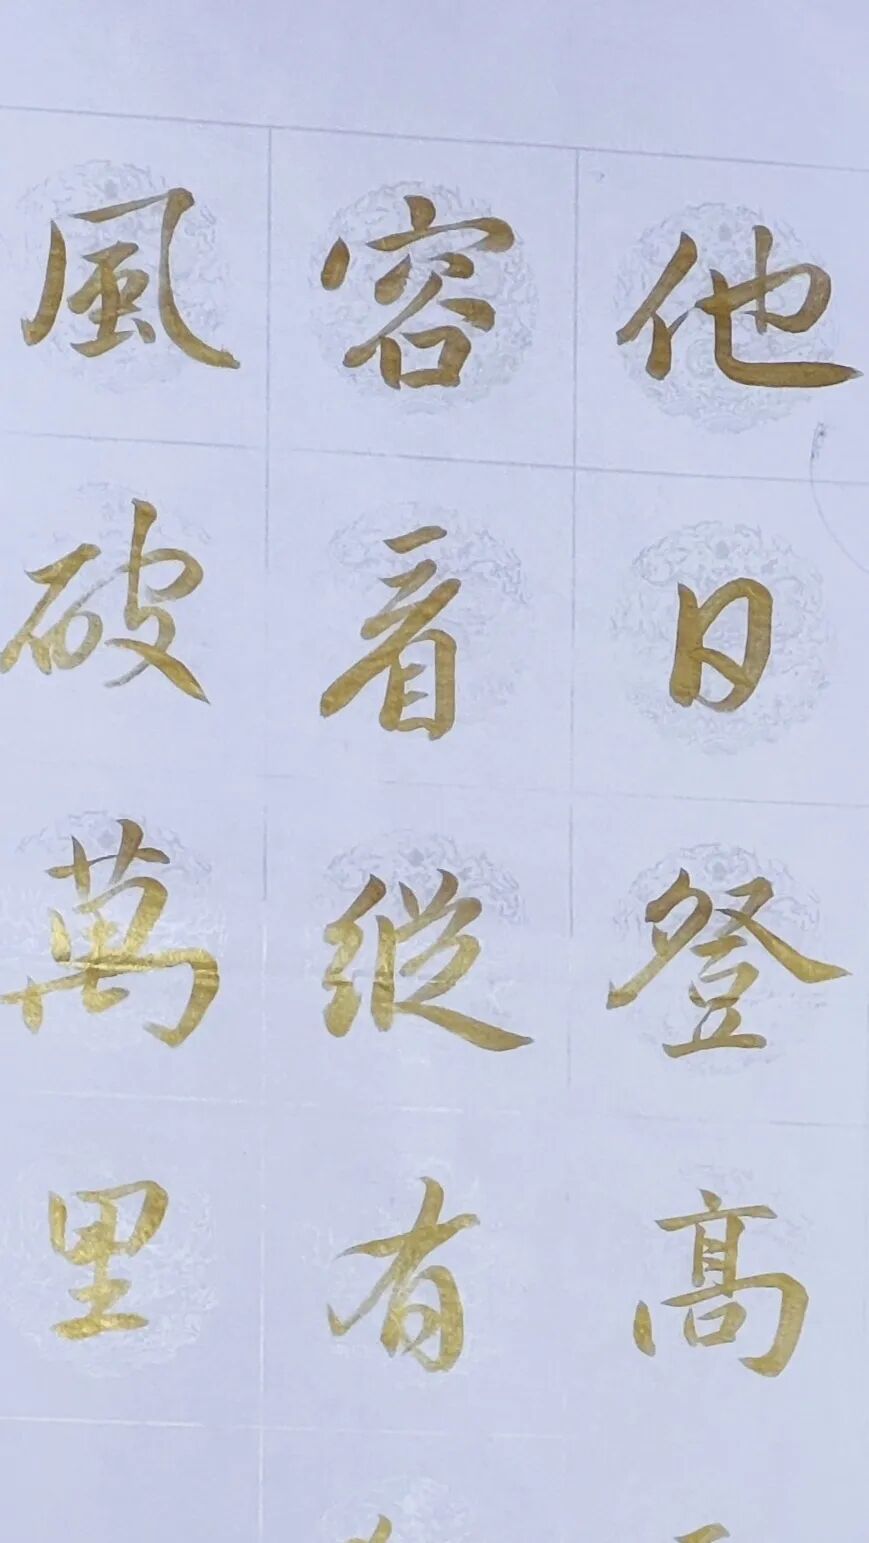 他日登高
容看縱有
風破萬里